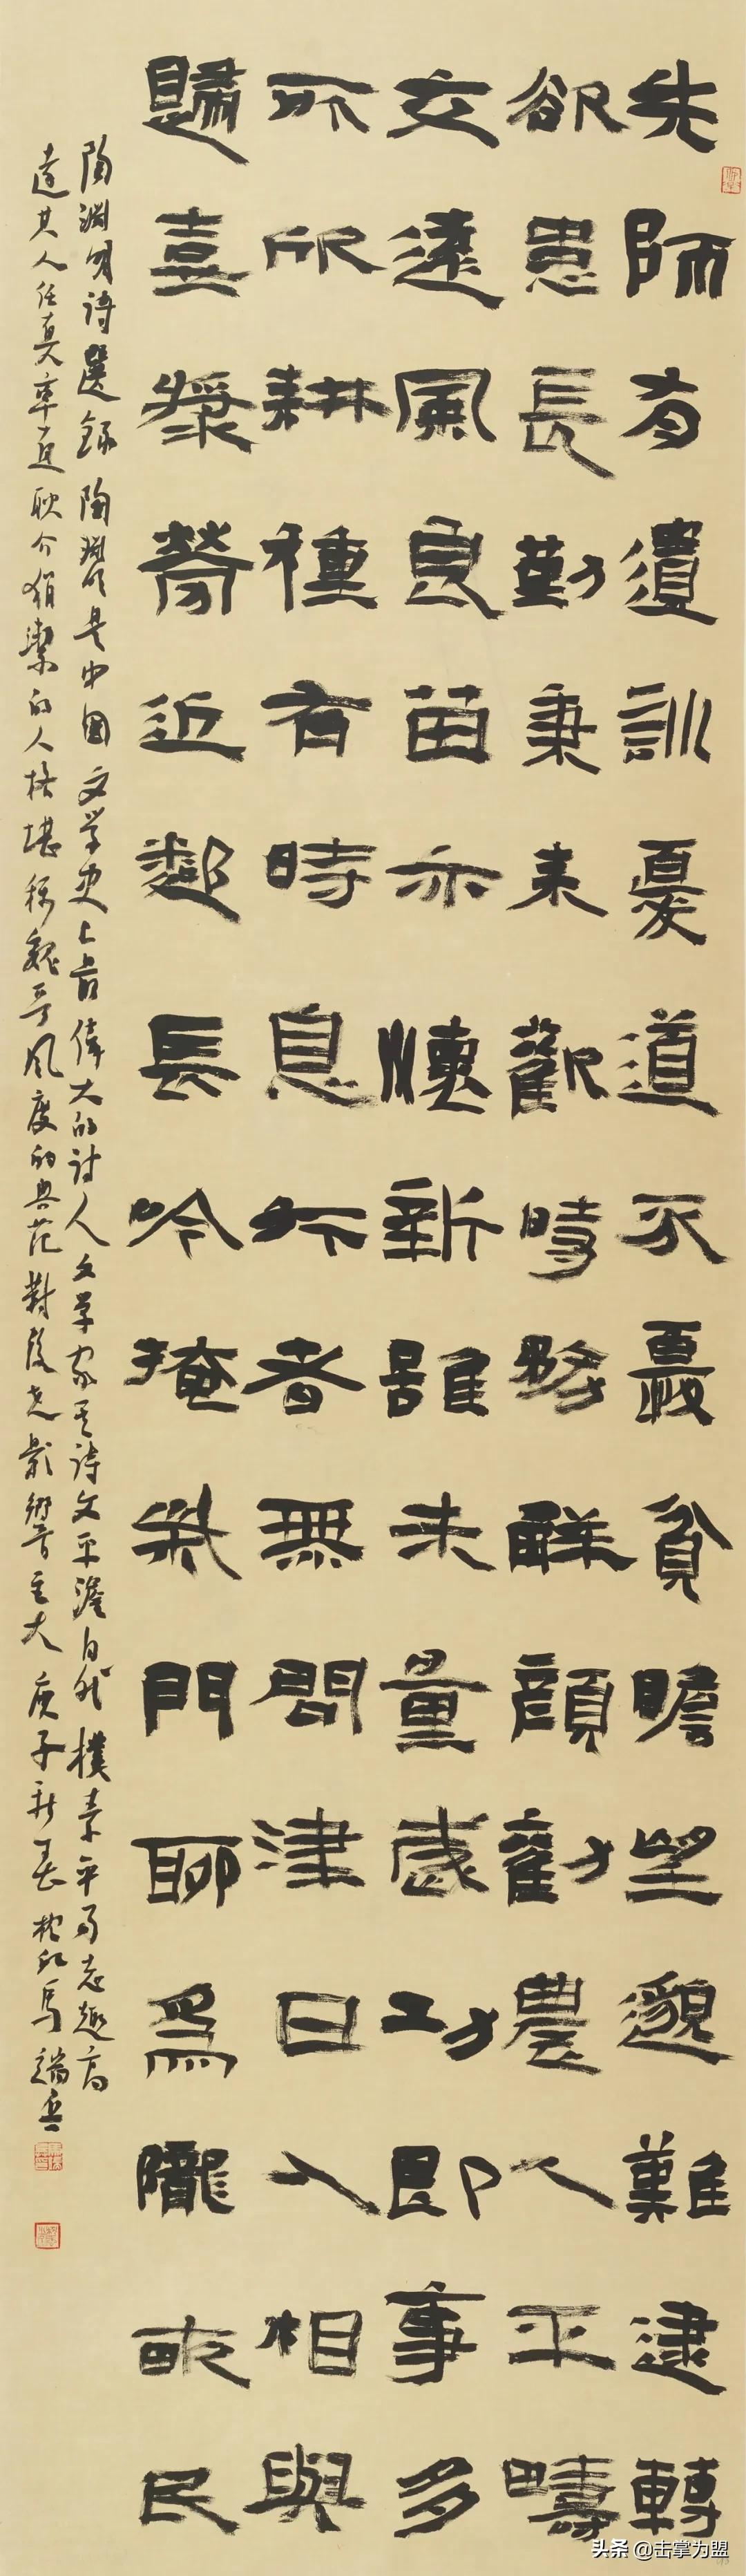 先師有遺訓憂道不憂貧瞻望邈難逮轉
欲患長勤秉耒歡時務解顔勸農人平疇
交遠風良苗亦懷新雖未量歲功即事多
所欣耕種有時息行者無問津日入相與
歸壺漿勞近鄰長吟掩柴門聊為隴畝民
陶淵明詩選錄陶淵明是中國文學史上最偉大的詩人文學家其詩文平澹自然樸素平易志趣高
達其人任真率直耿介狷潔的人格堪稱魏晉風度的典范對後世影響至大庚子新春 馬端兵
头条 @击掌为盟